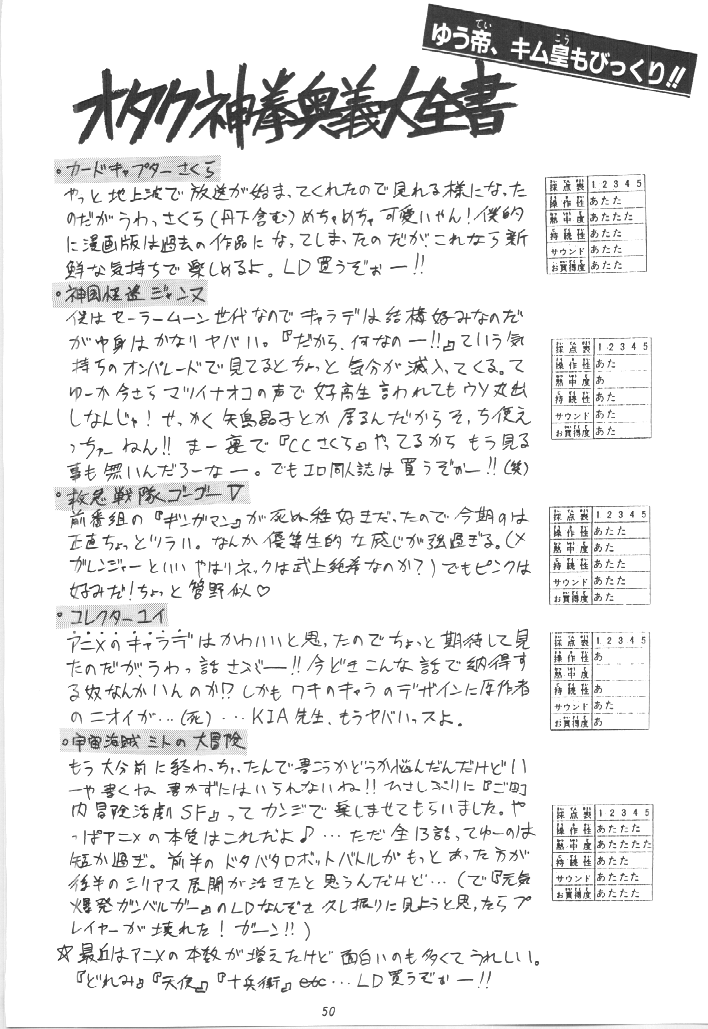 ゆう帝、キム皇もびっくり!!
オタク神拳奥義大全書
・カードキャプターさくら
やっと地上波で放送が始まってくれたので見れる様になった
のだがうわっさくら(丹下含む)めちゃめちゃ可愛いやん!僕的
に漫画版は過去の作品になってしまったのだが、これなら新
鮮な気持ちで楽しめるよ。LD買うぞぉー!!
採点表 1 2 3 4 5
操作性 あたた
熱中度 あたたた
持続性 あたた
サウンド あたた
お買得度 あたた
・神風怪盗ジャンヌ
僕はセーラームーン世代なのでキャラデは結構好みなのだ
が中身はかなりヤバい。『だから、何なのー!!』ていう気
持ちのオンパレードで見てるとちょっと気分が滅入ってくる。て
ゆーか今さらマツイナオコの声で女子高生言われてもウソ丸出
しなんじゃ!せっかく矢島晶子とか居るんだからそっち使え
っちゅーねん!!まー裏で『CCさくら』やってるからもう見る
事も無いんだろーなー。でもエロ同人誌は買うぞぉー!!(笑)
採点表 1 2 3 4 5
操作性 あた
熱中度 あ
持続性 あた
サウンド あた
お買得度 あた
・救急戦隊ゴーゴーV
前番組の『ギンガマン』が死ぬ程好きだったので今期のは
正直ちょっとツラい。なんか優等生的な感じが強過ぎる。(メ
ガレンジャーといいやはりネックは武上純希なのか?)でもピンクは
好みだ!ちょっと菅野似♡
採点表 1 2 3 4 5
操作性 あたた
熱中度 あた
持続性 あたた
サウンド あた
お買得度 あたた
・コレクターユイ
アニメのキャラデはかわいいと思ったのでちょっと期待して見
たのだが、うわっ話さぶー!!今どきこんな話で納得す
る奴なんかいんのか!?しかもワキのキャラのデザインに原作者
のニオイが…(死)…KIA先生、もうヤバいっスよ。
採点表 1 2 3 4 5
操作性 あ
熱中度
持続性 あ
サウンド あた
お買得度 あ
・宇宙海賊ミトの大冒険
もう大分前に終わっちゃったんで書こうかどうか悩んだんだけどい
ーや書くね 書かずにはいられないね!!ひさしぶりに『ご町
内冒険活劇SF』ってカンジで楽しませてもらいました。や
っぱアニメの本質はこれだよ♪…ただ全13話ってゆーのは
短か過ぎ。前半のドタバタロボットバトルがもっとあった方が
後半のシリアス展開が活きたと思うんだけど…(で『元気
爆発ガンバルガー』のLDなんぞを久し振りに見ようと思ったらプ
レイヤーが壊れた!ガーン!!)
採点表 1 2 3 4 5
操作性 あたたた
熱中度 あたたたた
持続性 あたた
サウンド あたたた
お買得度 あたたた
☆最近はアニメの本数が増えたけど面白いのも多くてうれしい。
『どれみ』『天使』『十兵衛』etc…LD買うぞぉー!!
50